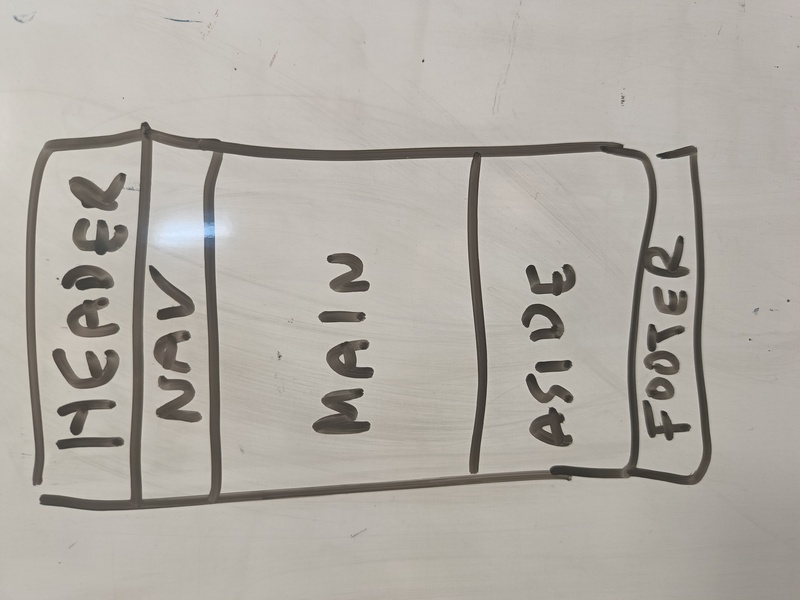 HEADER
NAV
MAIN
ASIDE
FOOTER